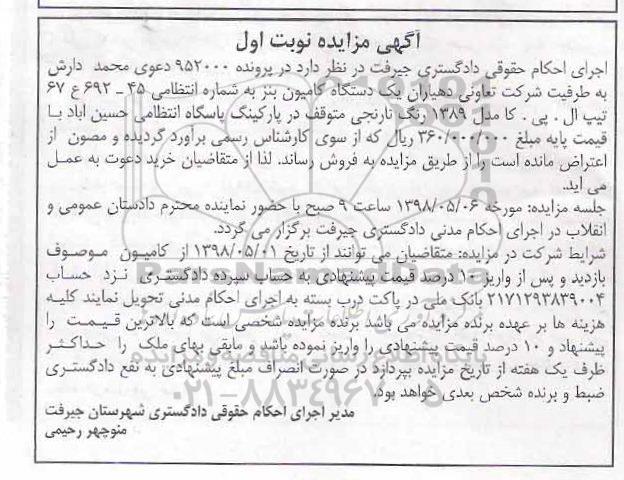 آگهی مزایده نوبت اول
اجرای احکام حقوقی دادگستری جیرفت در نظر دارد در پرونده ۹۵۲۰۰۰ دعوی محمد دارش
به طرفیت شرکت تعاونی دهیاران یک دستگاه کامیون بنز به شماره انتظامی ۴۵ ـ ۶۹۲ ع ۶۷
تیپ ال . پی . کا مدل ۱۳۸۹ رنگ نارنجی متوقف در پارکینگ پاسگاه انتظامی حسین اباد با
قیمت پایه مبلغ ۳۶۰/۰۰۰/۰۰۰ ریال که از سوی کارشناس رسمی برآورد گردیده و مصون از
اعتراض مانده است را از طریق مزایده به فروش رساند. لذا از متقاضیان خرید دعوت به عمل
می آید.
جلسه مزایده: مورخه ۱۳۹۸/۰۵/۰۶ ساعت ۹ صبح با حضور نماینده محترم دادستان عمومی و
انقلاب در اجرای احکام مدنی دادگستری جیرفت برگزار می گردد.
شرایط شرکت در مزایده: متقاضیان می توانند از تاریخ ۱۳۹۸/۰۵/۰۱ از کامیون موصوف
بازدید و پس از واریز ۱۰ درصد قیمت پیشنهادی به حساب سپرده دادگستری نزد حساب
۲۱۷۱۲۹۳۸۳۹۰۰۴ بانک ملی در پاکت درب بسته به اجرای احکام مدنی تحویل نمایند کلیه
هزینه ها بر عهده برنده مزایده می باشد برنده مزایده شخصی است که بالاترین قیمت را
پیشنهاد و ۱۰ درصد قیمت پیشنهادی را واریز نموده باشد و مابقی بهای ملک را حداکثر
ظرف یک هفته از تاریخ مزایده بپردازد در صورت انصراف مبلغ پیشنهادی به نفع دادگستری
ضبط و برنده شخص بعدی خواهد بود.
۰۲۱-۸۸۳۴۹۶۷۰-۵
مدیر اجرای احکام حقوقی دادگستری شهرستان جیرفت
منوچهر رحیمی